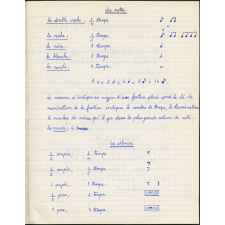 Les notes.
la double croche : 1/4 temps
la croche : 1/2 temps
la noire : 1 temps
la blanche : 2 temps
la ronde : 4 temps
La mesure s'indique au moyen d'une fraction placé après la clé. Le
numérateur de la fraction indique le nombre de temps, le dénominateur
le nombre de notes qu'il y a dans la plus grande valeur de note :
la ronde
Les silences
1/4 soupir, 1/4 temps
1/2 soupir, 1/2 temps
1 soupir, 1 temps
1/2 pause, 2 temps
1 pause, 4 temps